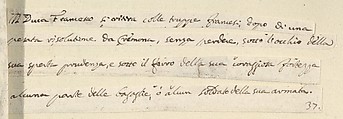 Il Duca Francesco si ritira colle truppe francesi, dopo di una
pesata risoluzione da Cremona, senza perdere, sotto l'occhio della
sua prudenza, e sotto il ferro della sua coraggiosa fortezza
alcuna parte delle bagaglie, o alcun soldato della sua armata.
37.